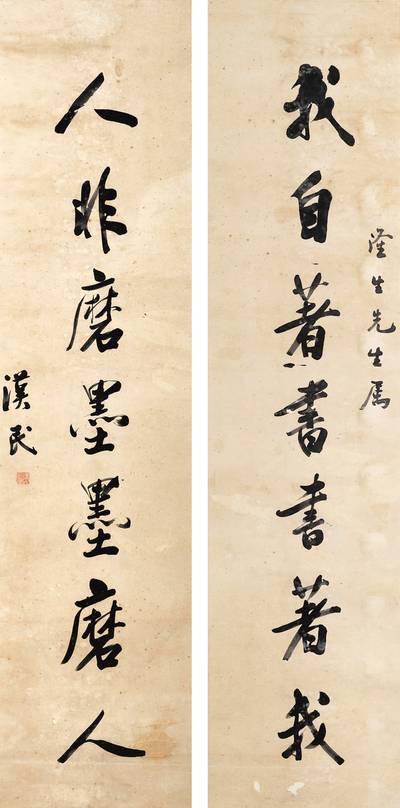 生先生属
我自著書書著我
人非磨墨墨磨人
漢民